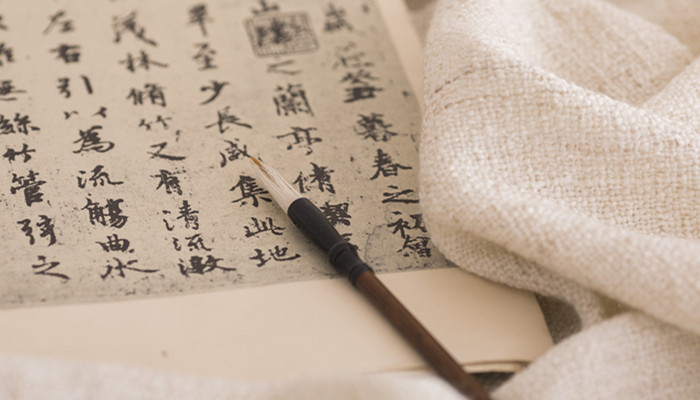 歲在癸丑暮春之初會
山之蘭亭脩禊
畢至少長咸集此地
茂林脩竹又有清流激
左右引以為流觴曲水
無絲竹管弦之